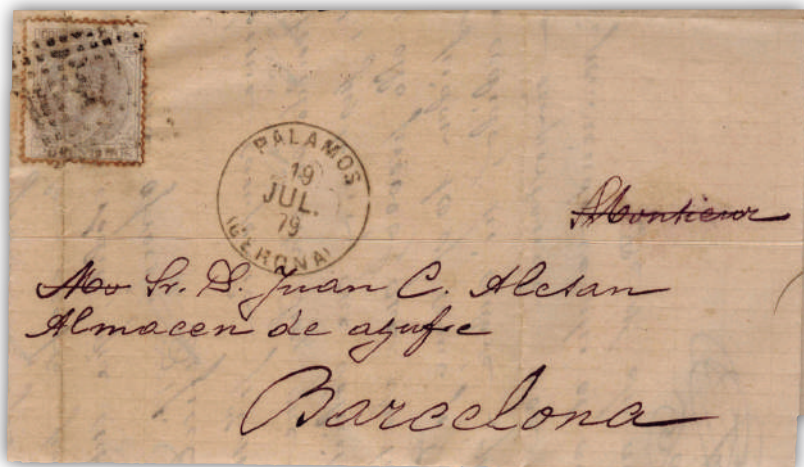 PALAMOS
19
JUL.
79
(GERONA)
Monsieur
Mo Sr. D. Juan C. Alesan
Almacen de azufre
Barcelona